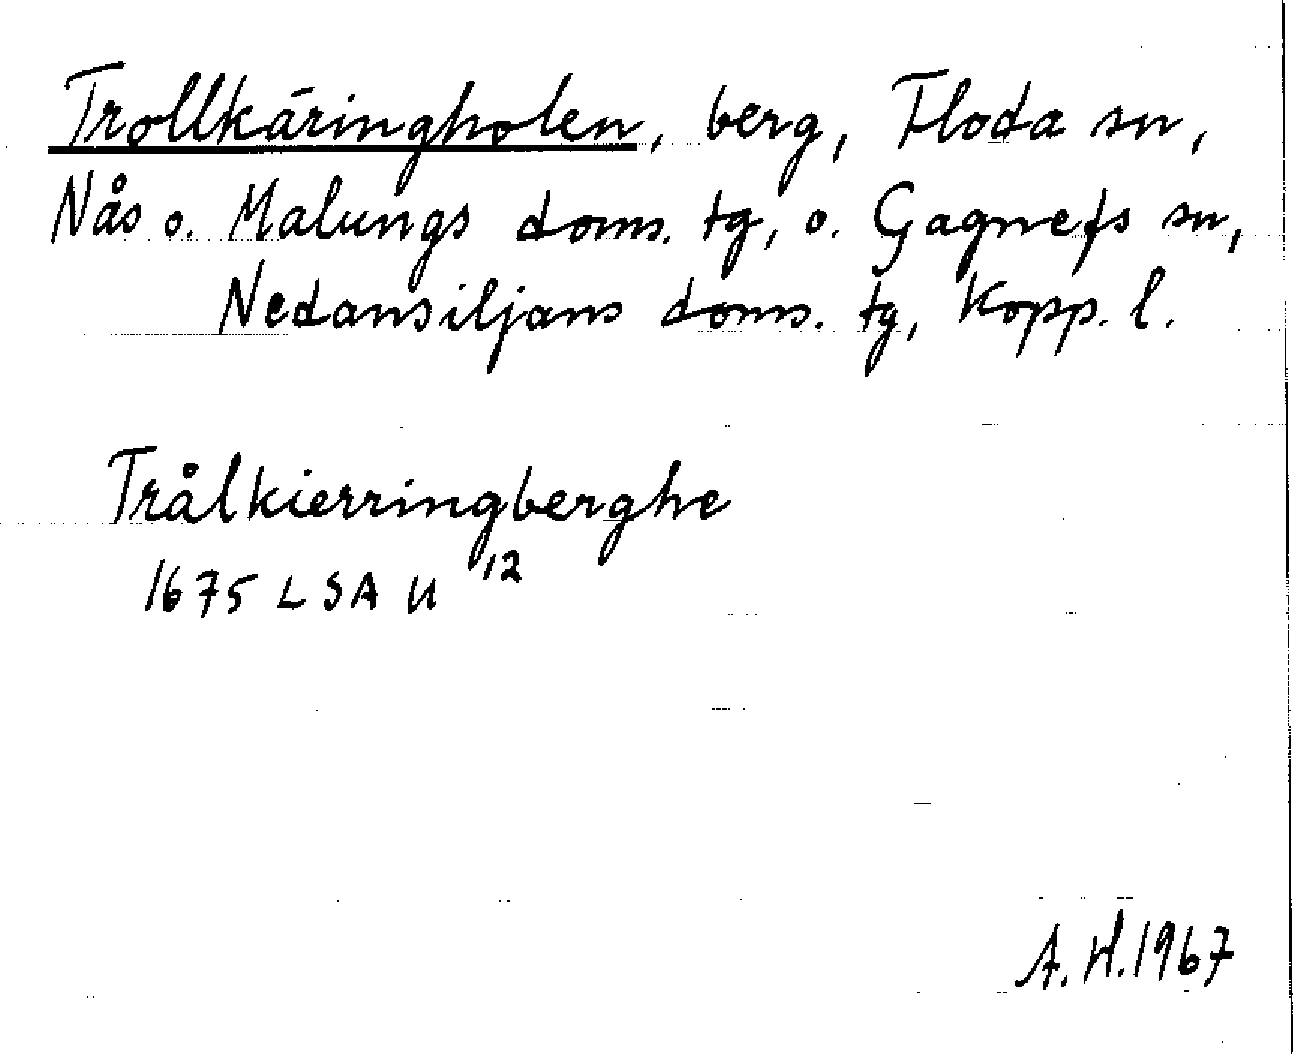 Trollkäringholen, berg, Floda sn,
Nås o. Malungs doms. tg, o. Gagnefs sn,
Nedansiljans doms. tg, Kopp. l.
Trålkierringberghe
1675 LSA U 12
A. H. 1967